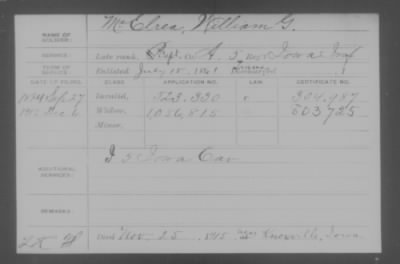 NAME OF SOLDIER: McElrea, William G.
SERVICE: Late rank, Co. A, 3 Reg't Iowa Inf
TERM OF SERVICE: Enlisted July 15, 1861 Discharged
DATE OF FILING. CLASS. APPLICATION NO. LAW. CERTIFICATE NO.
1884 Sep 27 Invalid, 523.330 304.987
Dec 6 Widow, 1056815 803725
Minor,
I 5 Iowa Cav
ADDITIONAL SERVICES:
REMARKS:
Died Nov. 25, 1915, near Knoxville, Iowa